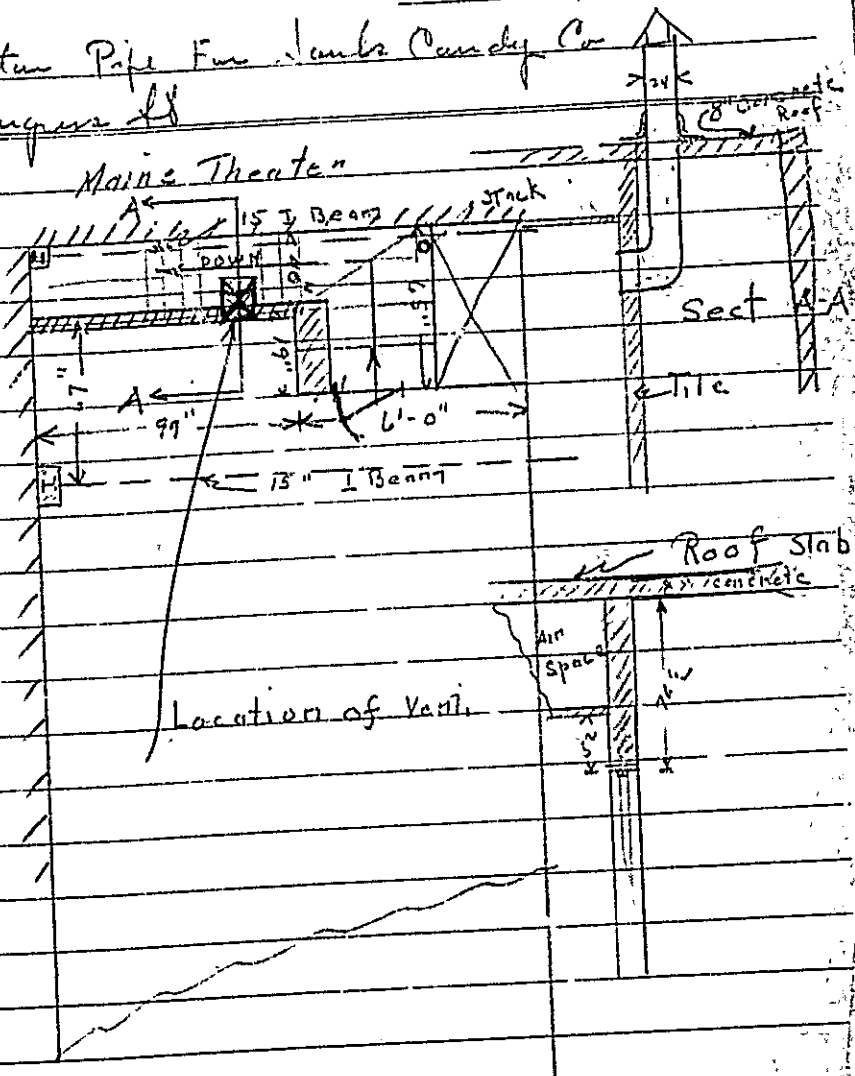 Pipe For Candy Co
24
8" Concrete
Roof
Maine Theater
A
15 I Beam
Stack
DOWN
Sect A-A
57"
19"
A
99"
6'-0"
Tile
15" I Beam
Roof Slab
concrete
Air
Space
Location of Vent.